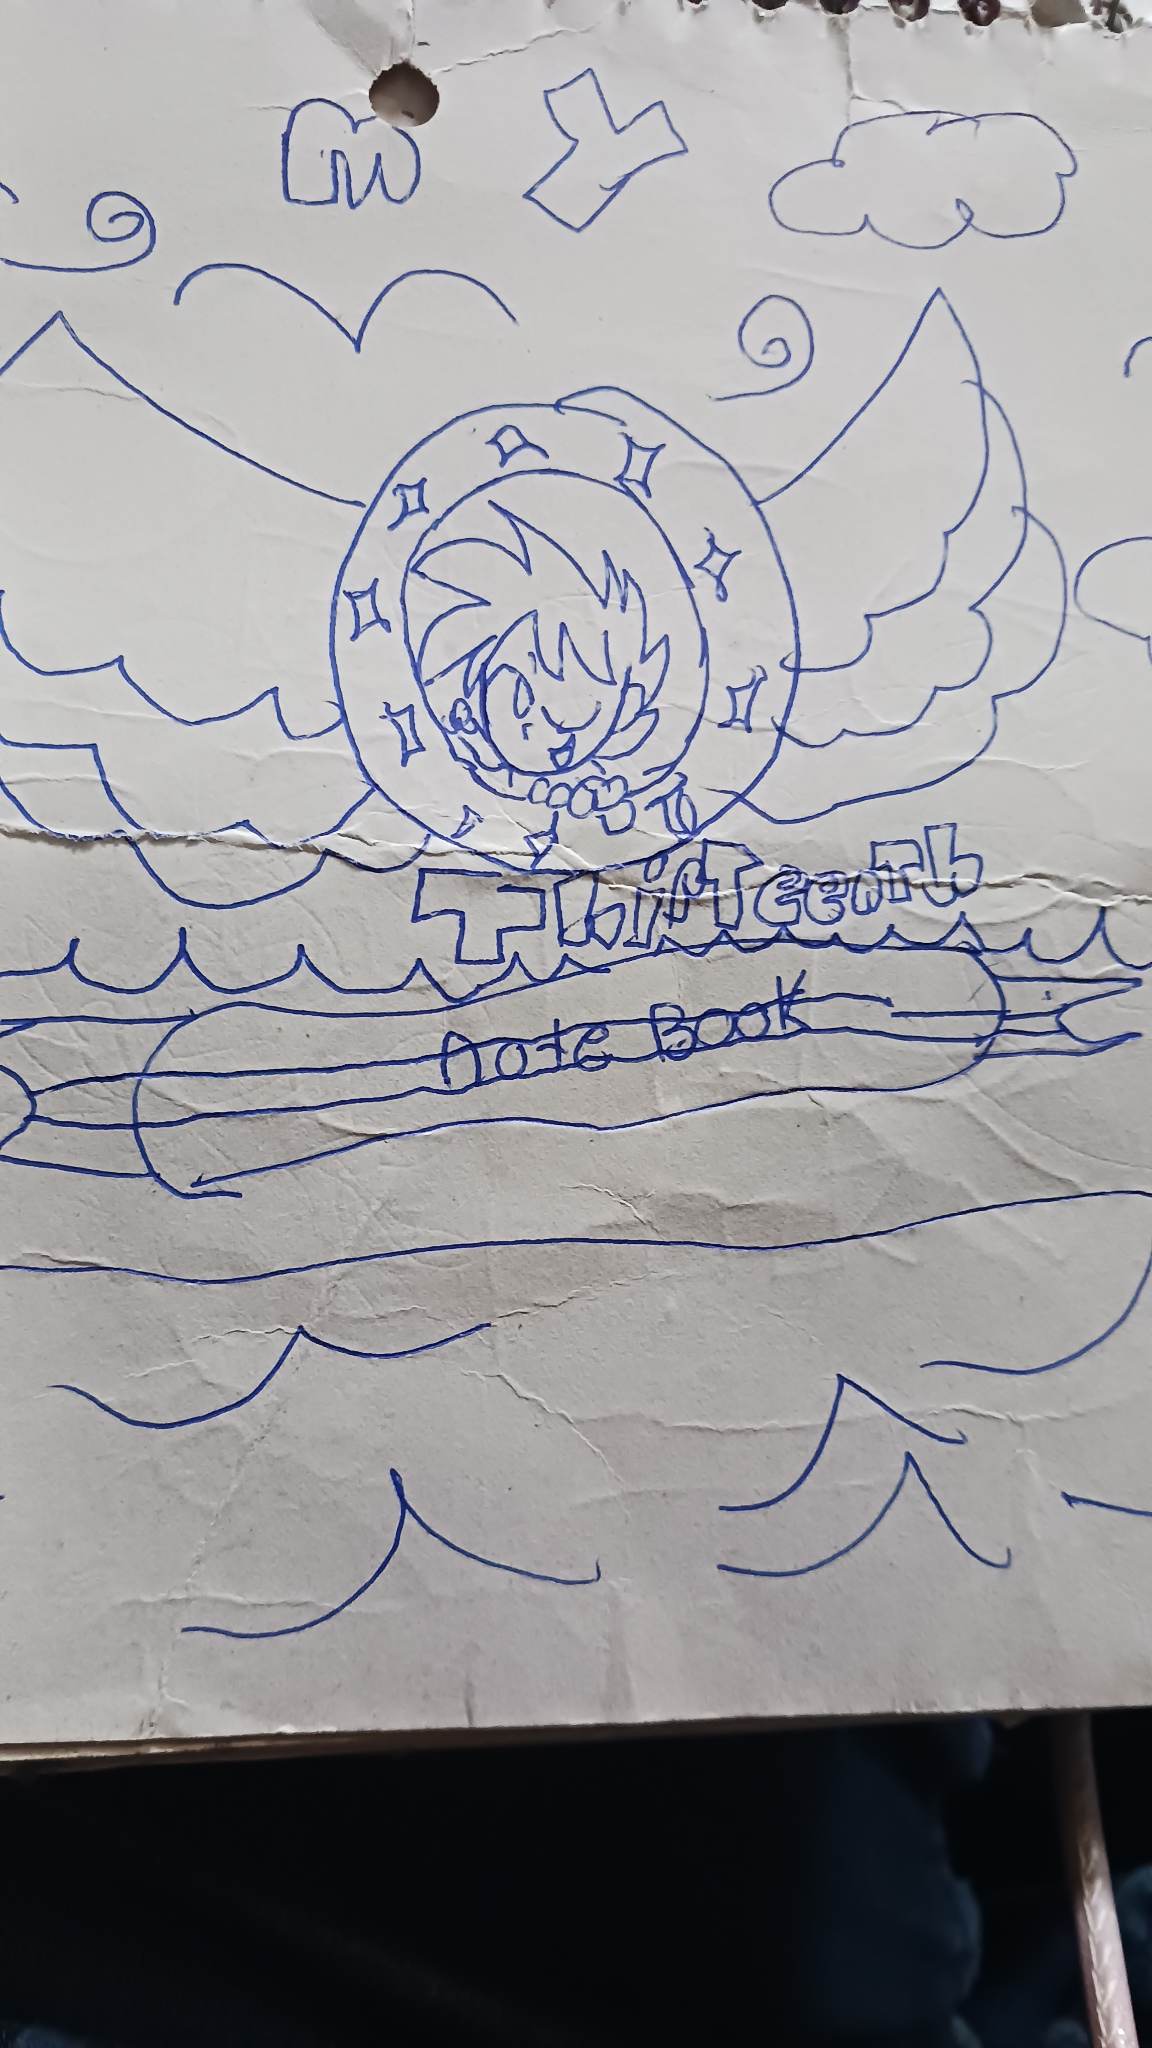 my
ThirTeenTh
note Book